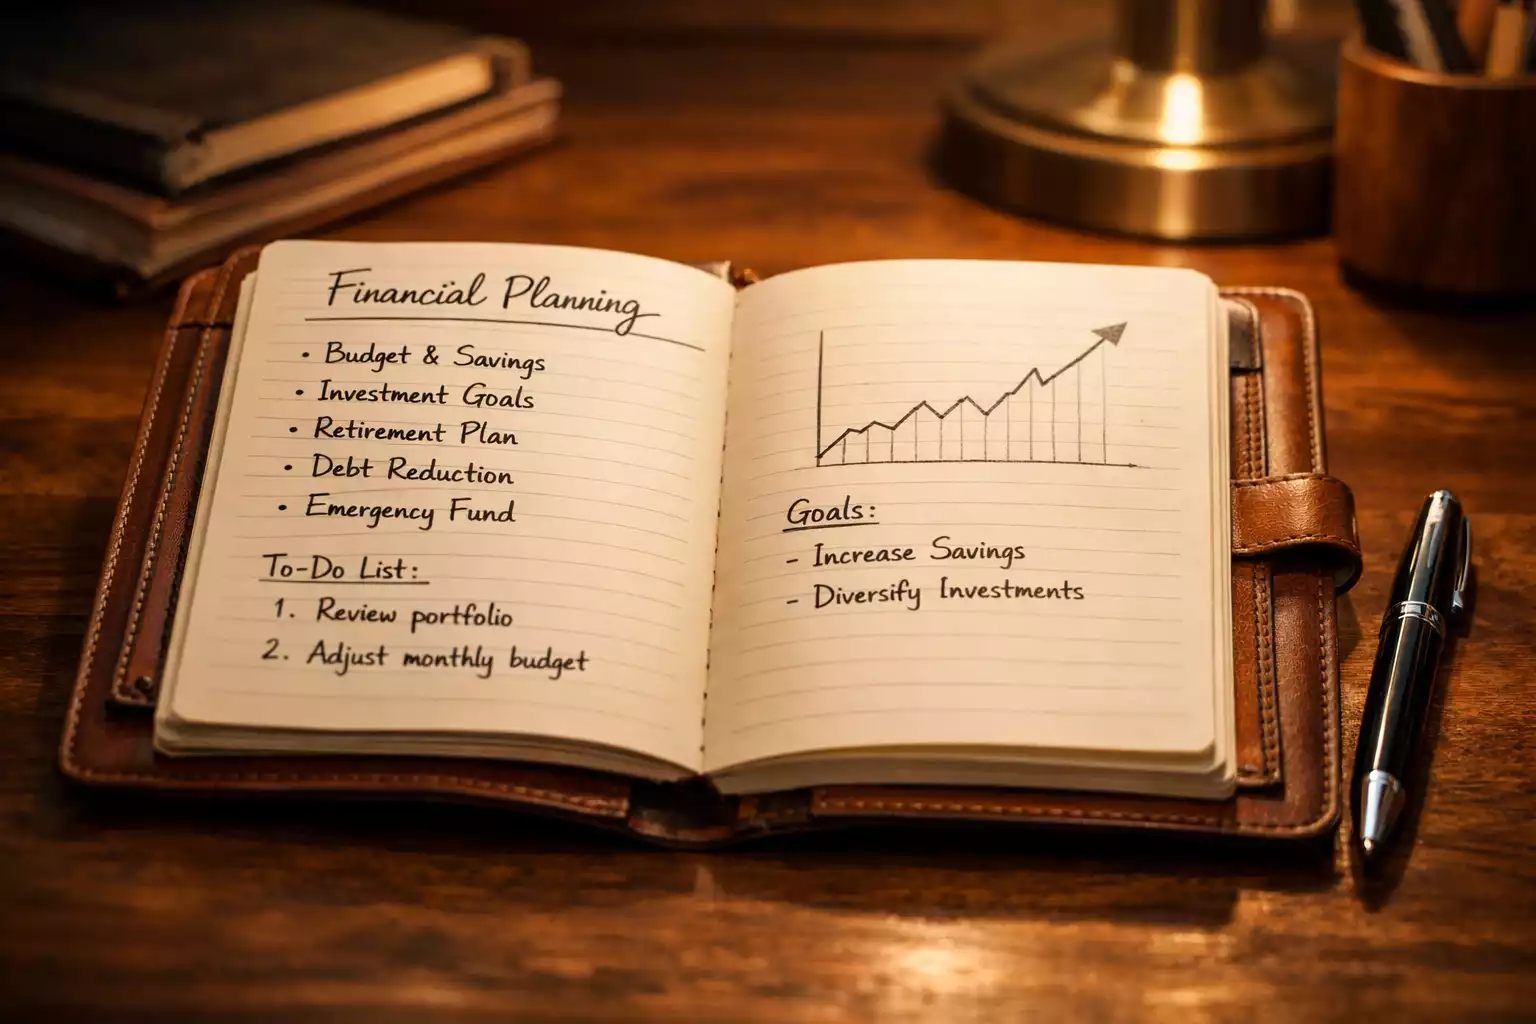 Financial Planning
• Budget & Savings
• Investment Goals
• Retirement Plan
• Debt Reduction
• Emergency Fund
To-Do List:
1. Review portfolio
2. Adjust monthly budget
Goals:
- Increase Savings
- Diversify Investments